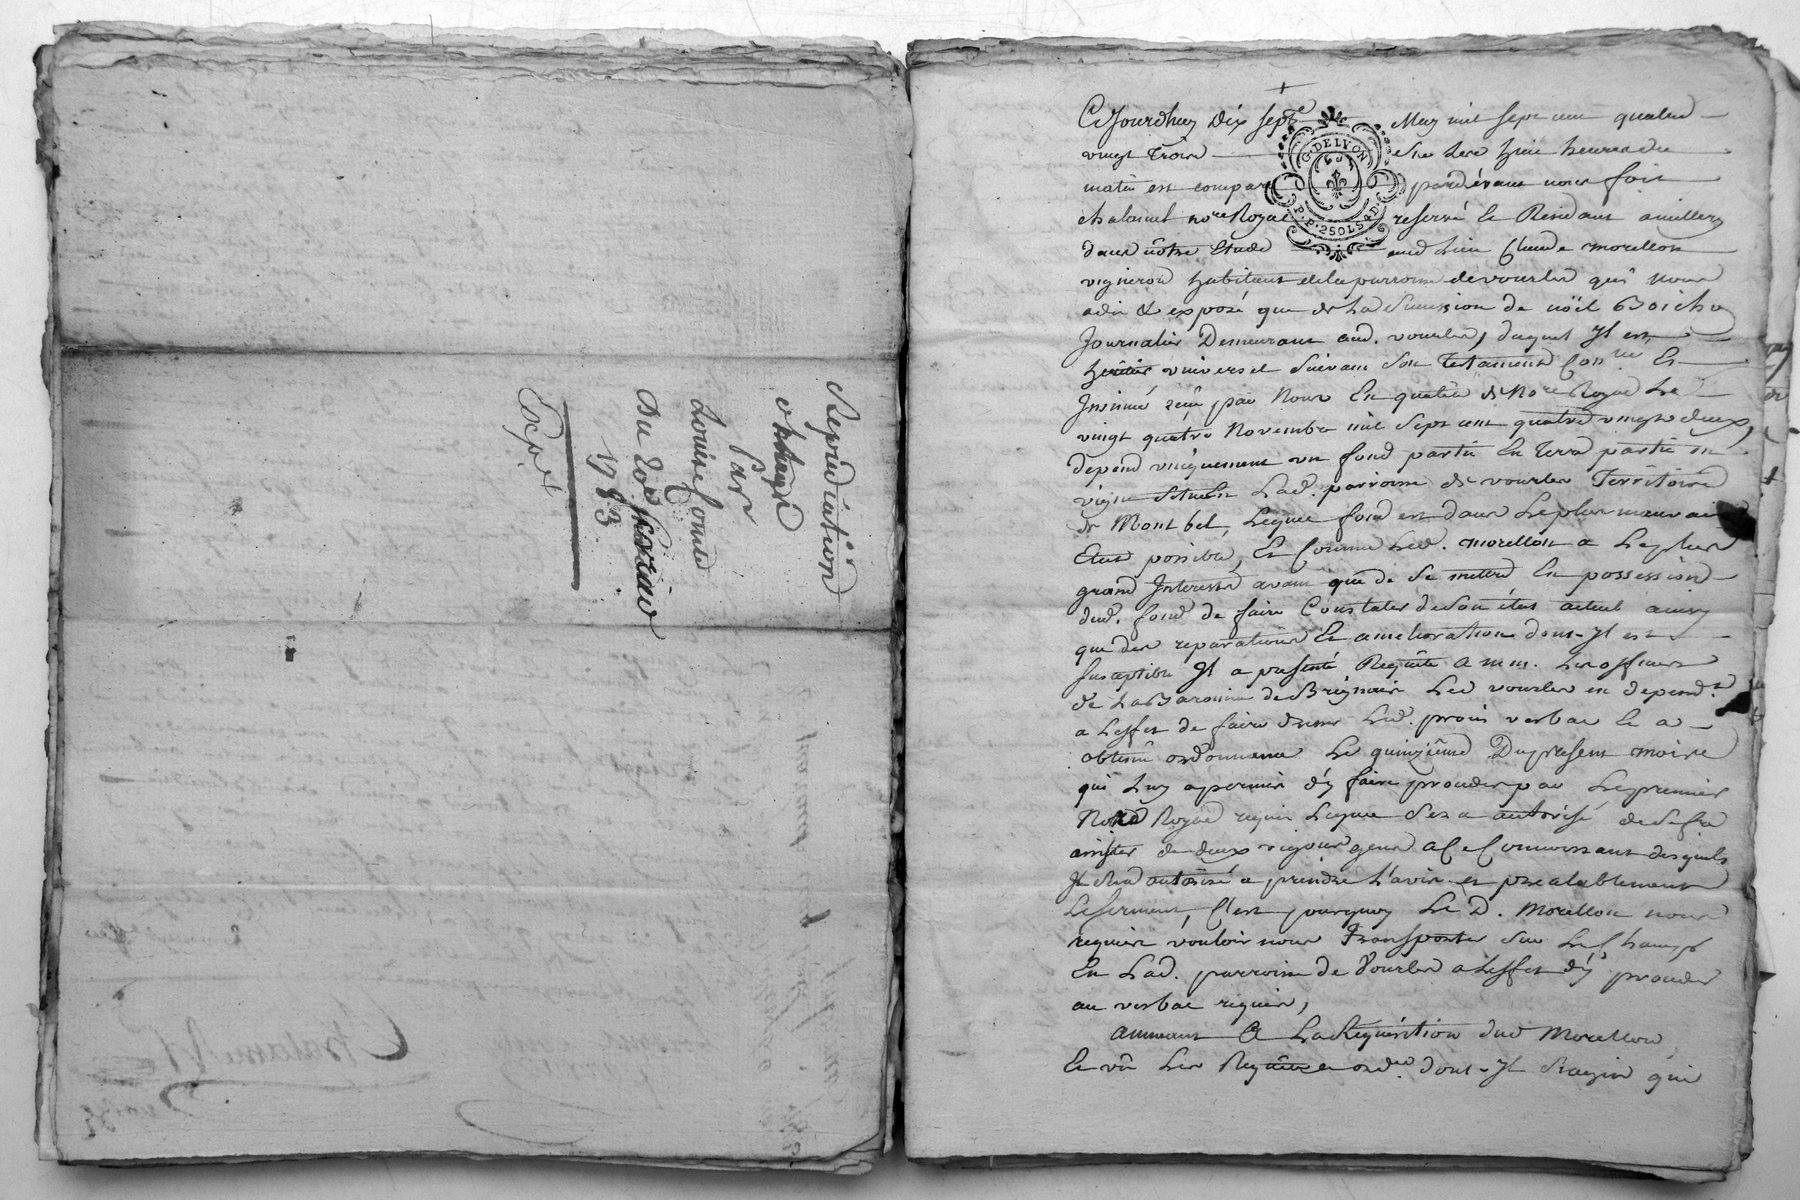 Repudiation
d'heredité
Par
Louise Comte
Du 20e fevrier
1783
Exp.ié
G. DE LYON
P.P. 2 SOLS 4 D.
Ce Jourdhuy Dix sept May mil sept cent quatre
vingt Trois sur Les huit heures du
matin est comparu pardevant nous foit
chalamel no.re Royal reservé Et Residant a millery
dans nôtre Etude aud. Lieu Claude morellon
vigneron habitant de la parroisse de vourles qui nous
a dit & exposé que de La Succession de noël Boichu
Journalier Demeurant aud. vourles, duquel Il est
heritier universel Suivant Son Testament Con.lé Et
Insinué reçu par Nous En qualité de No.re Royal Le
vingt quatre Novembre mil Sept cent quatre vingts deux,
depend uniquement un fond partie En Terre partie en
vigne Situé En Lad. parroisse de vourles Territoire
de Mont bel, Lequel fond est dans Le plus mauvais
Etat possible, Et Comme Led. morellon a Le plus
grand Interest avant que de Se mettre En possession
dud. fond de faire Constater de Son état actuel ainsy
que des reparations Et amelioration dont Il est
susceptible Il a presenté Requête a mrs. Les officiers
de La Baronnie de Brignais Led vourles en depend.t
a L'effet de faire dresser Led. procès verbal Et a
obtenû ordonnance Le quinzième Du present mois
qui Luy a permis d'y faire proceder par Le premier
No.re Royal requis Lequel Sera autorisé de Se faire
assister de deux vignerons gens a Ce Connoissant desquels
Il Sera autorisé a prendre L'avis et prealablement
Le serment, C'est pourquoy Le D. Morellon nous
requiert vouloir nous Transporter Sur Le Champ
En Lad. parroisse de Vourles a L'effet d'y proceder
au verbal requis,
annuant A La Requisition dud Morellon
Et vû Les Requête et ord.ce dont Il S'agit qui